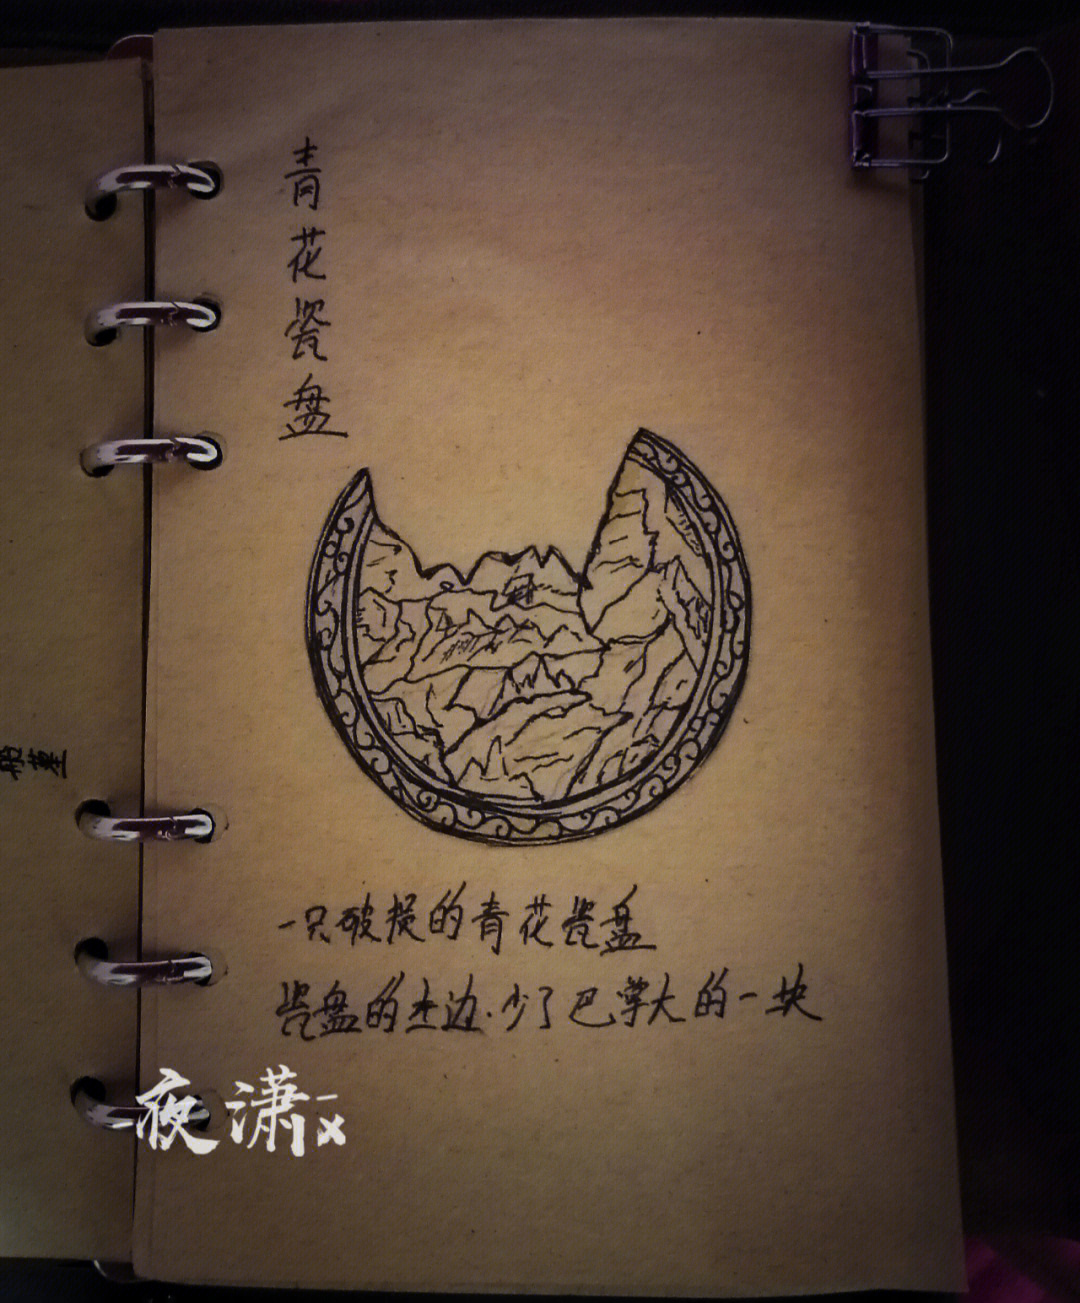 青花瓷盘
一只破损的青花瓷盘
瓷盘的左边.少了巴掌大的一块
夜潇